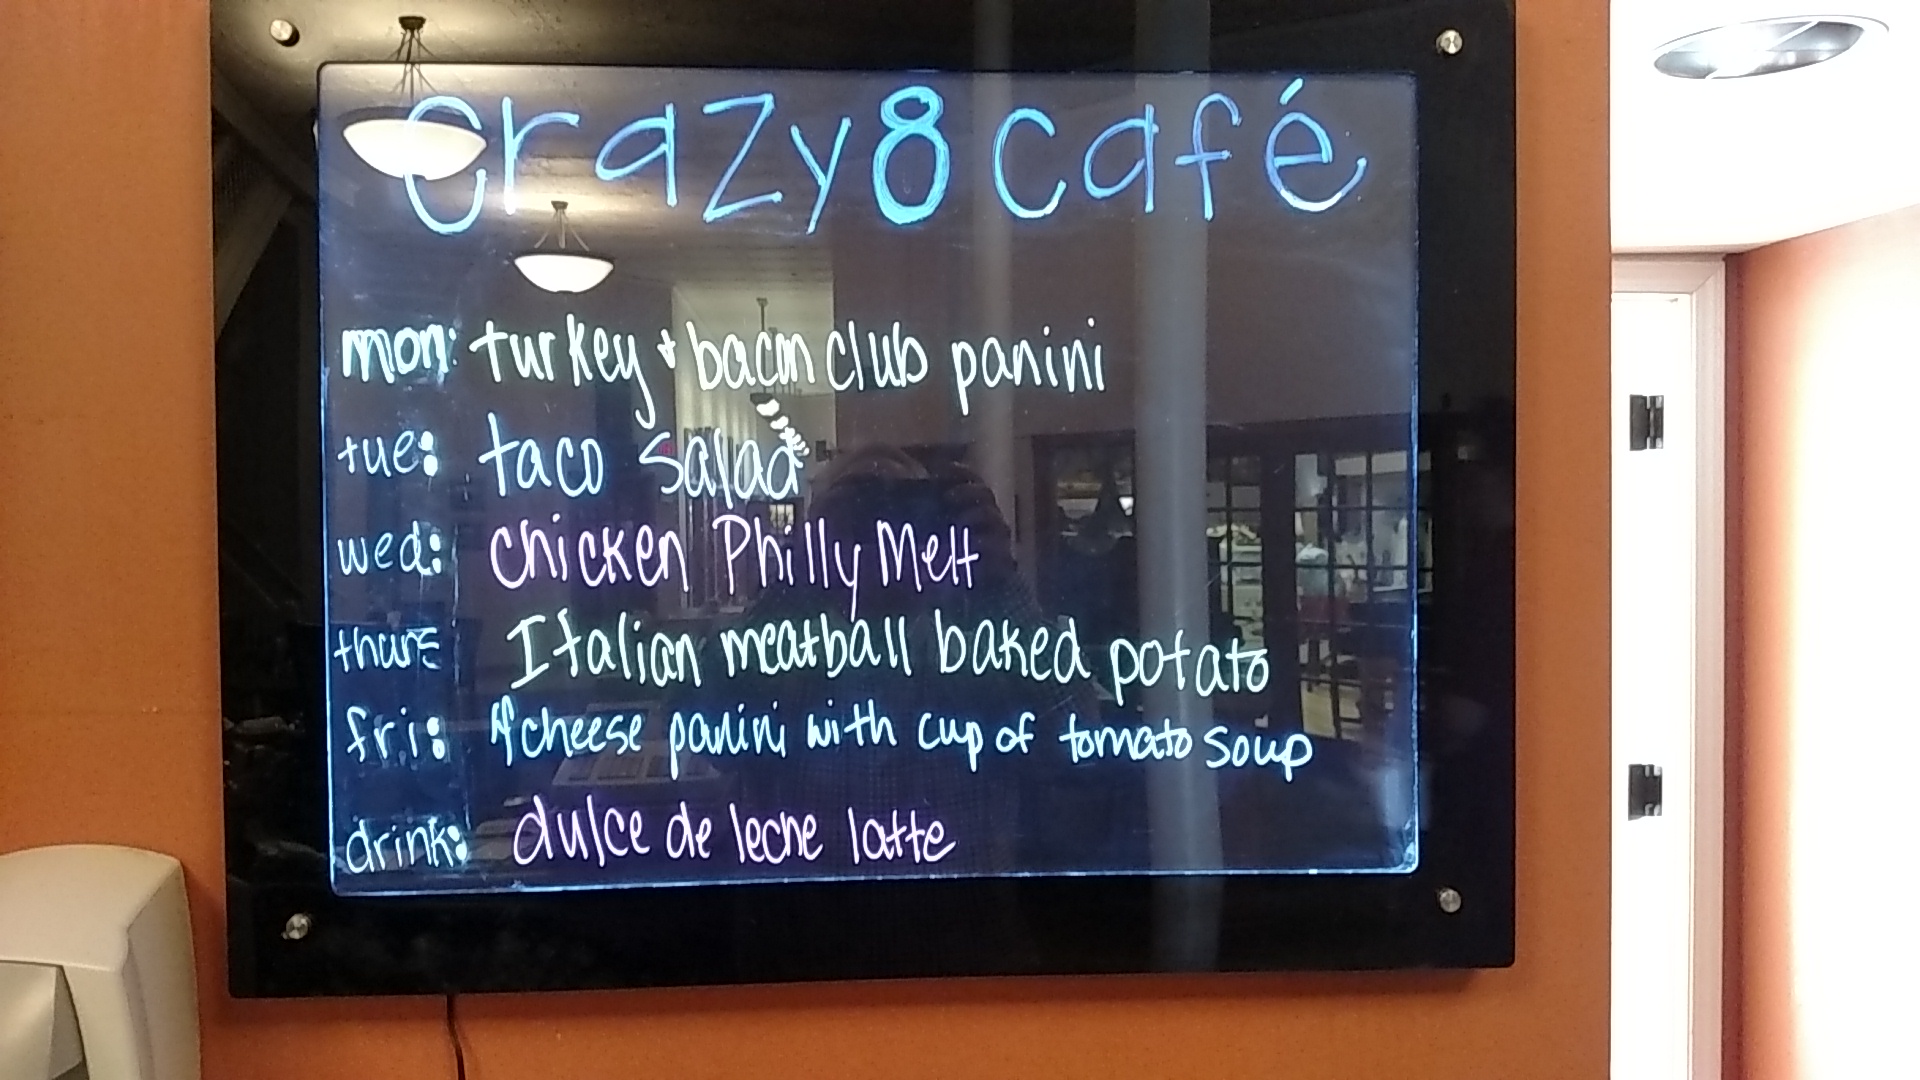 crazy8 café
mon: turkey + bacon club panini
tue: taco salad
wed: chicken Philly Melt
thur: Italian meatball baked potato
fri: 4 cheese panini with cup of tomato soup
drink: dulce de leche latte